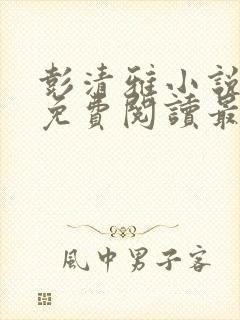 彭清雅小說
免費閱讀最
風中男子客